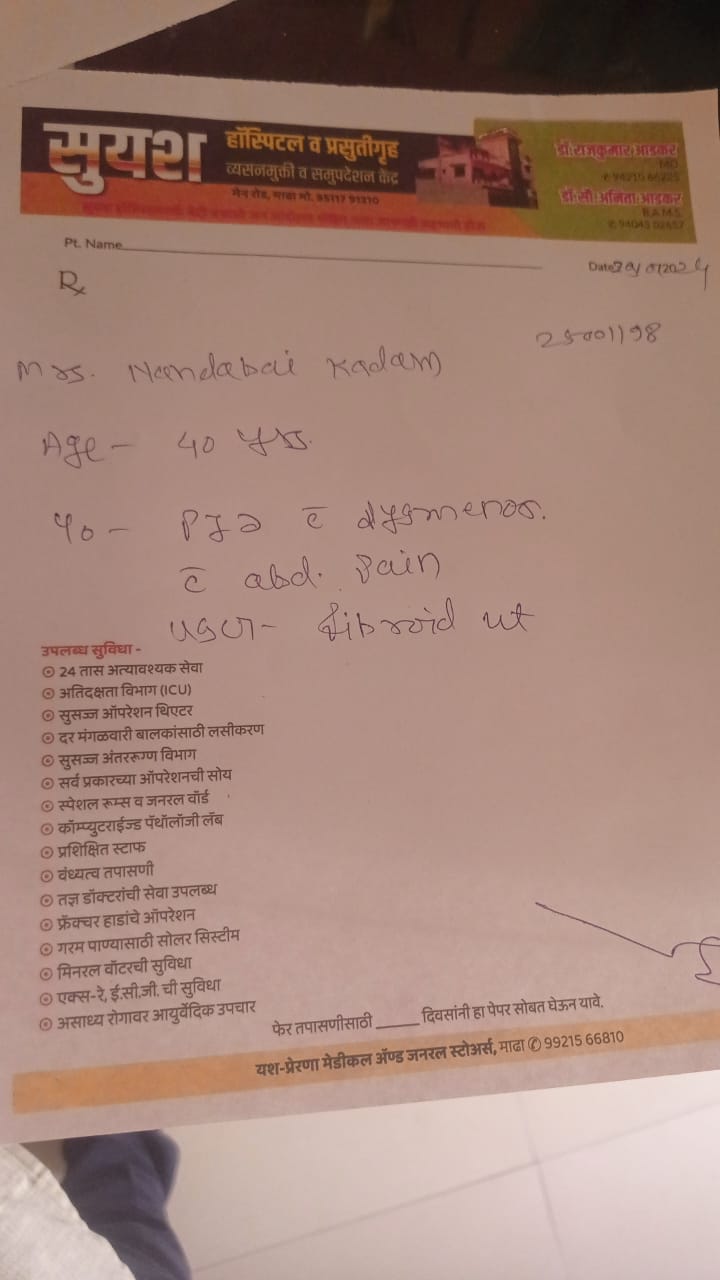 सुयश हॉस्पिटल व प्रसुतीगृह
व्यसनमुक्ती व समुपदेशन केंद्र
मेन रोड, माढा मो. 95117 91210
डॉ. राजकुमार आडकर
MD
डॉ. सौ. अनिता आडकर
B.A.M.S.
Pt. Name
Date
Rx
25001198
Mrs. Nandabai Kadam
Age - 40 yrs.
PID c̄ dysmenor.
c̄ abd. pain
USG - fibroid ut
उपलब्ध सुविधा -
24 तास अत्यावश्यक सेवा
अतिदक्षता विभाग (ICU)
सुसज्ज ऑपरेशन थिएटर
दर मंगळवारी बालकांसाठी लसीकरण
सुसज्ज अंतररुग्ण विभाग
सर्व प्रकारच्या ऑपरेशनची सोय
स्पेशल रूम्स व जनरल वॉर्ड
कॉम्प्युटराईज्ड पॅथॉलॉजी लॅब
प्रशिक्षित स्टाफ
वंध्यत्व तपासणी
तज्ञ डॉक्टरांची सेवा उपलब्ध
फ्रॅक्चर हाडांचे ऑपरेशन
गरम पाण्यासाठी सोलर सिस्टीम
मिनरल वॉटरची सुविधा
एक्स-रे, ई.सी.जी. ची सुविधा
असाध्य रोगावर आयुर्वेदिक उपचार
फेर तपासणीसाठी ____ दिवसांनी हा पेपर सोबत घेऊन यावे.
यश-प्रेरणा मेडीकल ॲण्ड जनरल स्टोअर्स, माढा ✆ 99215 66810